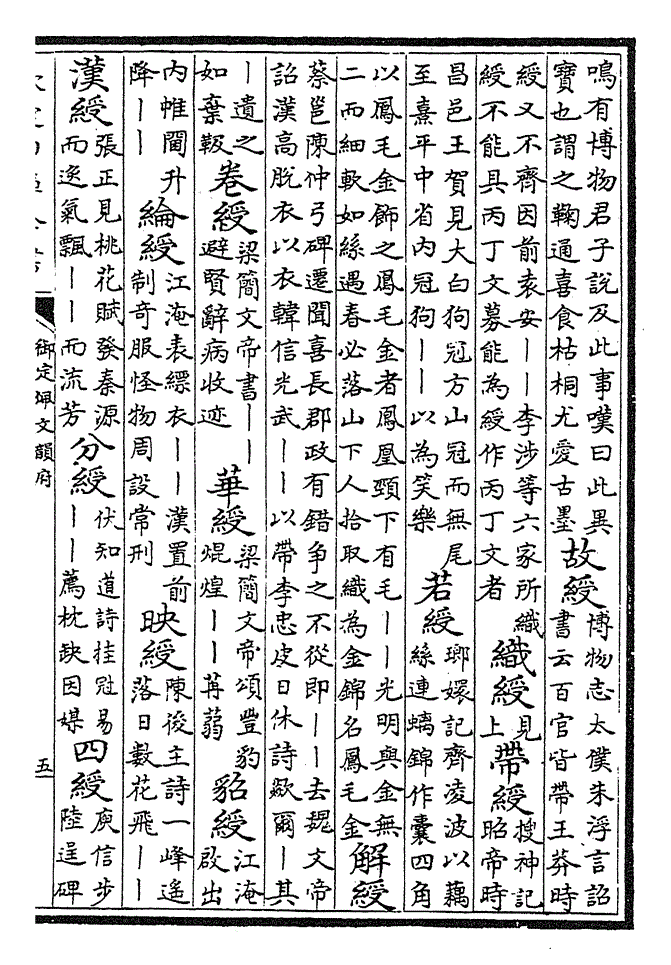 鳴有博物君子說及此事嘆曰此異
寶也謂之鞠通喜食枯桐尤愛古墨
故綬
博物志太僕朱浮言詔
書云百官皆帶王莽時
綬又不齊因前袁安——李涉等六家所織
綬不能具丙丁文募能為綬作丙丁文者
織綬
見
上
帶綬
搜神記
昭帝時
昌邑王賀見大白狗冠方山冠而無尾
至熹平中省內冠狗——以為笑樂
若綬
瑯嬛記齊凌波以藕
絲連螭錦作囊四角
以鳳毛金飾之鳳毛金者鳳凰頸下有毛——光明與金無
二而細軟如絲遇春必落山下人拾取織為金錦名鳳毛金
解綬
蔡邕陳仲弓碑遷聞喜長郡政有錯爭之不從即——去魏文帝
詔漢高脫衣以衣韓信光武——以帶李忠皮日休詩歘爾—其
—遺之
如棄靸
卷綬
梁簡文帝書——
避賢辭病收迹
華綬
梁簡文帝頌豐豹
焜煌——苒蒻
貂綬
江淹
啟出
內帷閫升
降——
綸綬
江淹表縹衣——漢置前
制奇服怪物周設常刑
映綬
陳後主詩一峰遙
落日數花飛——
漢綬
張正見桃花賦發秦源
而逸氣飄——而流芳
分綬
伏知道詩桂冠易
——薦枕缺因媒
四綬
庾信步
陸逞碑
御定佩文韻府
五